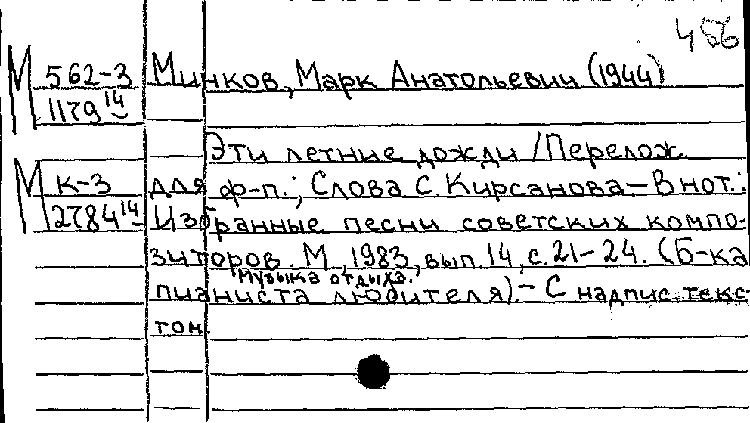 456
М 562-3 Минков, Марк Анатольевич (1944)
1179 14
Эти летние дожди / Перелож.
М К-3 для ф-п.; Слова С. Кирсанова — В нот.:
2784 14 Избранные песни советских компо-
зиторов. М., 1983, вып. 14, с. 21-24. (Б-ка
"Музыка отдыха."
пианиста любителя). — С надпис. текс-
том.